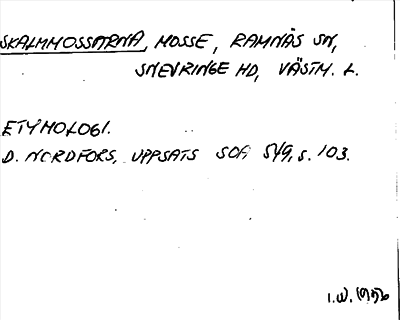 SKALMMOSSARNA, MOSSE, RAMNÄS SN,
SNEVRINGE HD, VÄSTM. L.
ETYMOLOGI.
D. NORDFORS, UPPSATS SOFI 549, s. 103.
I.W.